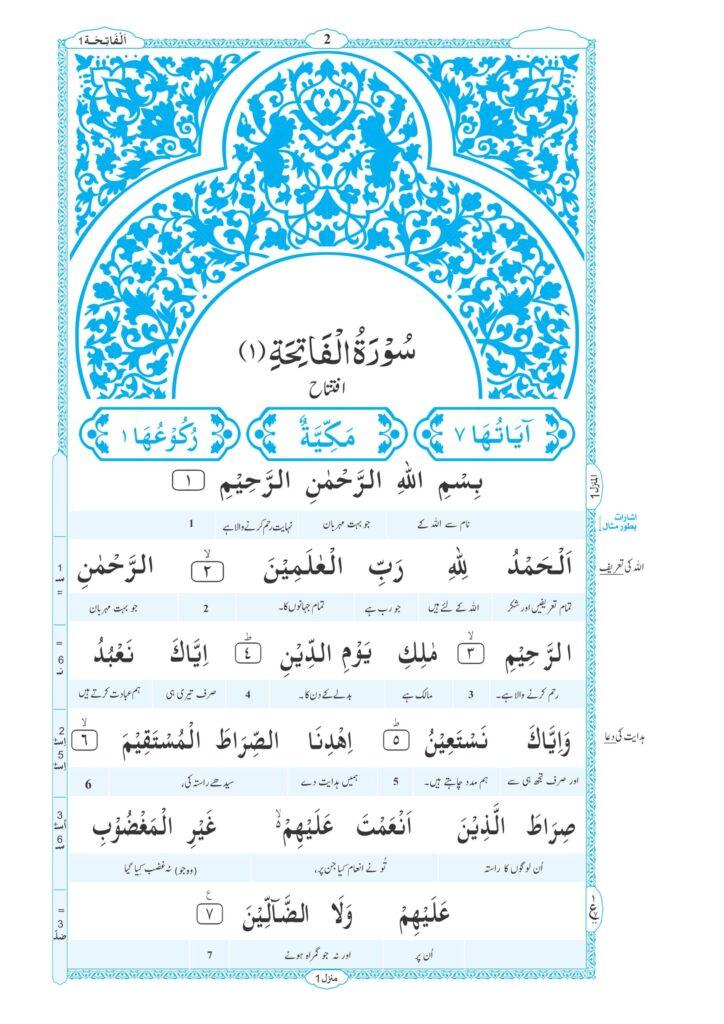 اَلْفَاتِحَة 1
2
سُوْرَةُ الْفَاتِحَةِ (١)
افتتاح
اٰيَاتُهَا ٧ مَكِّيَّةٌ رُكُوْعُهَا ١
المنزل 1
بِسْمِ اللّٰهِ الرَّحْمٰنِ الرَّحِيْمِ ١
نام سے اللہ کے جو بہت مہربان نہایت رحم کرنے والا ہے 1
اشارات
بطور مثال
اَلْحَمْدُ لِلّٰهِ رَبِّ الْعٰلَمِيْنَ ۙ ٢ الرَّحْمٰنِ
اللہ کی تعریف
تمام تعریفیں اور شکر اللہ کے لئے ہیں جو رب ہے تمام جہانوں کا۔ 2 جو بہت مہربان
الرَّحِيْمِ ۙ ٣ مٰلِكِ يَوْمِ الدِّيْنِ ؕ ٤ اِيَّاكَ نَعْبُدُ
رحم کرنے والا ہے۔ 3 مالک ہے بدلے کے دن کا۔ 4 صرف تیری ہی ہم عبادت کرتے ہیں
وَاِيَّاكَ نَسْتَعِيْنُ ؕ ٥ اِهْدِنَا الصِّرَاطَ الْمُسْتَقِيْمَ ۙ ٦
ہدایت کی دعا
اور صرف تجھ ہی سے ہم مدد چاہتے ہیں۔ 5 ہمیں ہدایت دے سیدھے راستہ کی، 6
صِرَاطَ الَّذِيْنَ اَنْعَمْتَ عَلَيْهِمْ ۙ غَيْرِ الْمَغْضُوْبِ
اُن لوگوں کا راستہ تُو نے انعام کیا جن پر، (وہ جو) نہ غضب کیا گیا
عَلَيْهِمْ وَلَا الضَّآلِّيْنَ ٧
اُن پر اور نہ جو گمراہ ہوئے 7
منزل 1